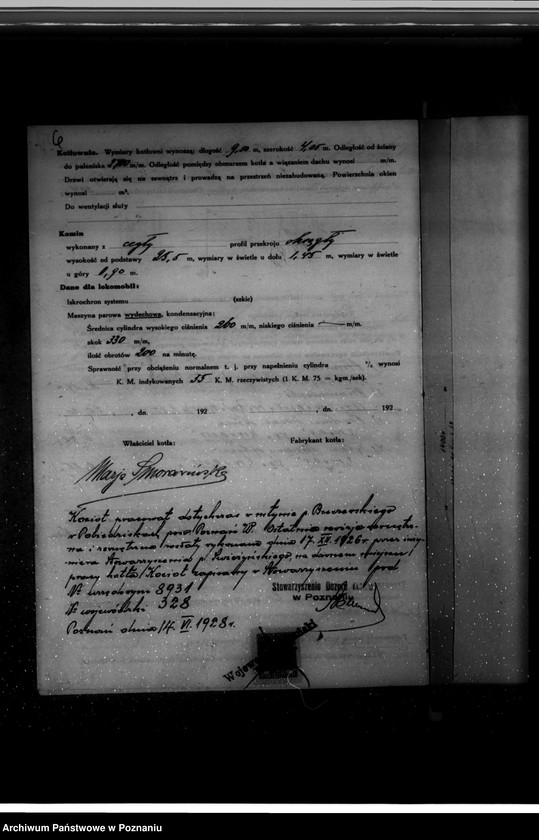 6
Kotłownia. Wymiary kotłowni wynoszą: długość 9,00 m, szerokość 7,05 m. Odległość od ściany
do paleniska m/m. Odległość pomiędzy obmurzem kotła a wiązaniem dachu wynosi m/m.
Drzwi otwierają się na zewnątrz i prowadzą na przestrzeń niezabudowaną. Powierzchnia okien
wynosi m².
Do wentylacji służy
Komin
wykonany z cegły profil przekroju okrągły
wysokość od podstawy 25,5 m, wymiary w świetle u dołu 1,45 m, wymiary w świetle
u góry 0,90 m.
Dane dla lokomobil:
Iskrochron systemu (szkic)
Maszyna parowa wydechowa, kondensacyjna:
Średnica cylindra wysokiego ciśnienia 260 m/m, niskiego ciśnienia — m/m.
skok 330 m/m,
ilość obrotów 200 na minutę.
Sprawność przy obciążeniu normalnem t. j. przy napełnieniu cylindra % wynosi
K. M. indykowanych 55 K. M. rzeczywistych (1 K. M. 75 = kgm/sek).
, dn. 192 , dn. 192
Właściciel kotła: Fabrykant kotła:
Kocioł pracował dotychczas w młynie p.
w Pobiedziskach, pow. Poznań W. Ostatnia rewizja zewnętrz-
na i wewnętrzna zostały wykonane dnia 17. XII. 1926 r przez inży-
niera Stowarzyszenia p. na dawnem miejscu
pracy kotła. Kocioł zapisany w Stowarzyszeniu pod
Nr. urzędowym 8931
Nr wojewódzki 328
Stowarzyszenie Dozoru Kotłów
w Poznaniu
Poznań dnia 14. VI. 1928 r.
Archiwum Państwowe w Poznaniu